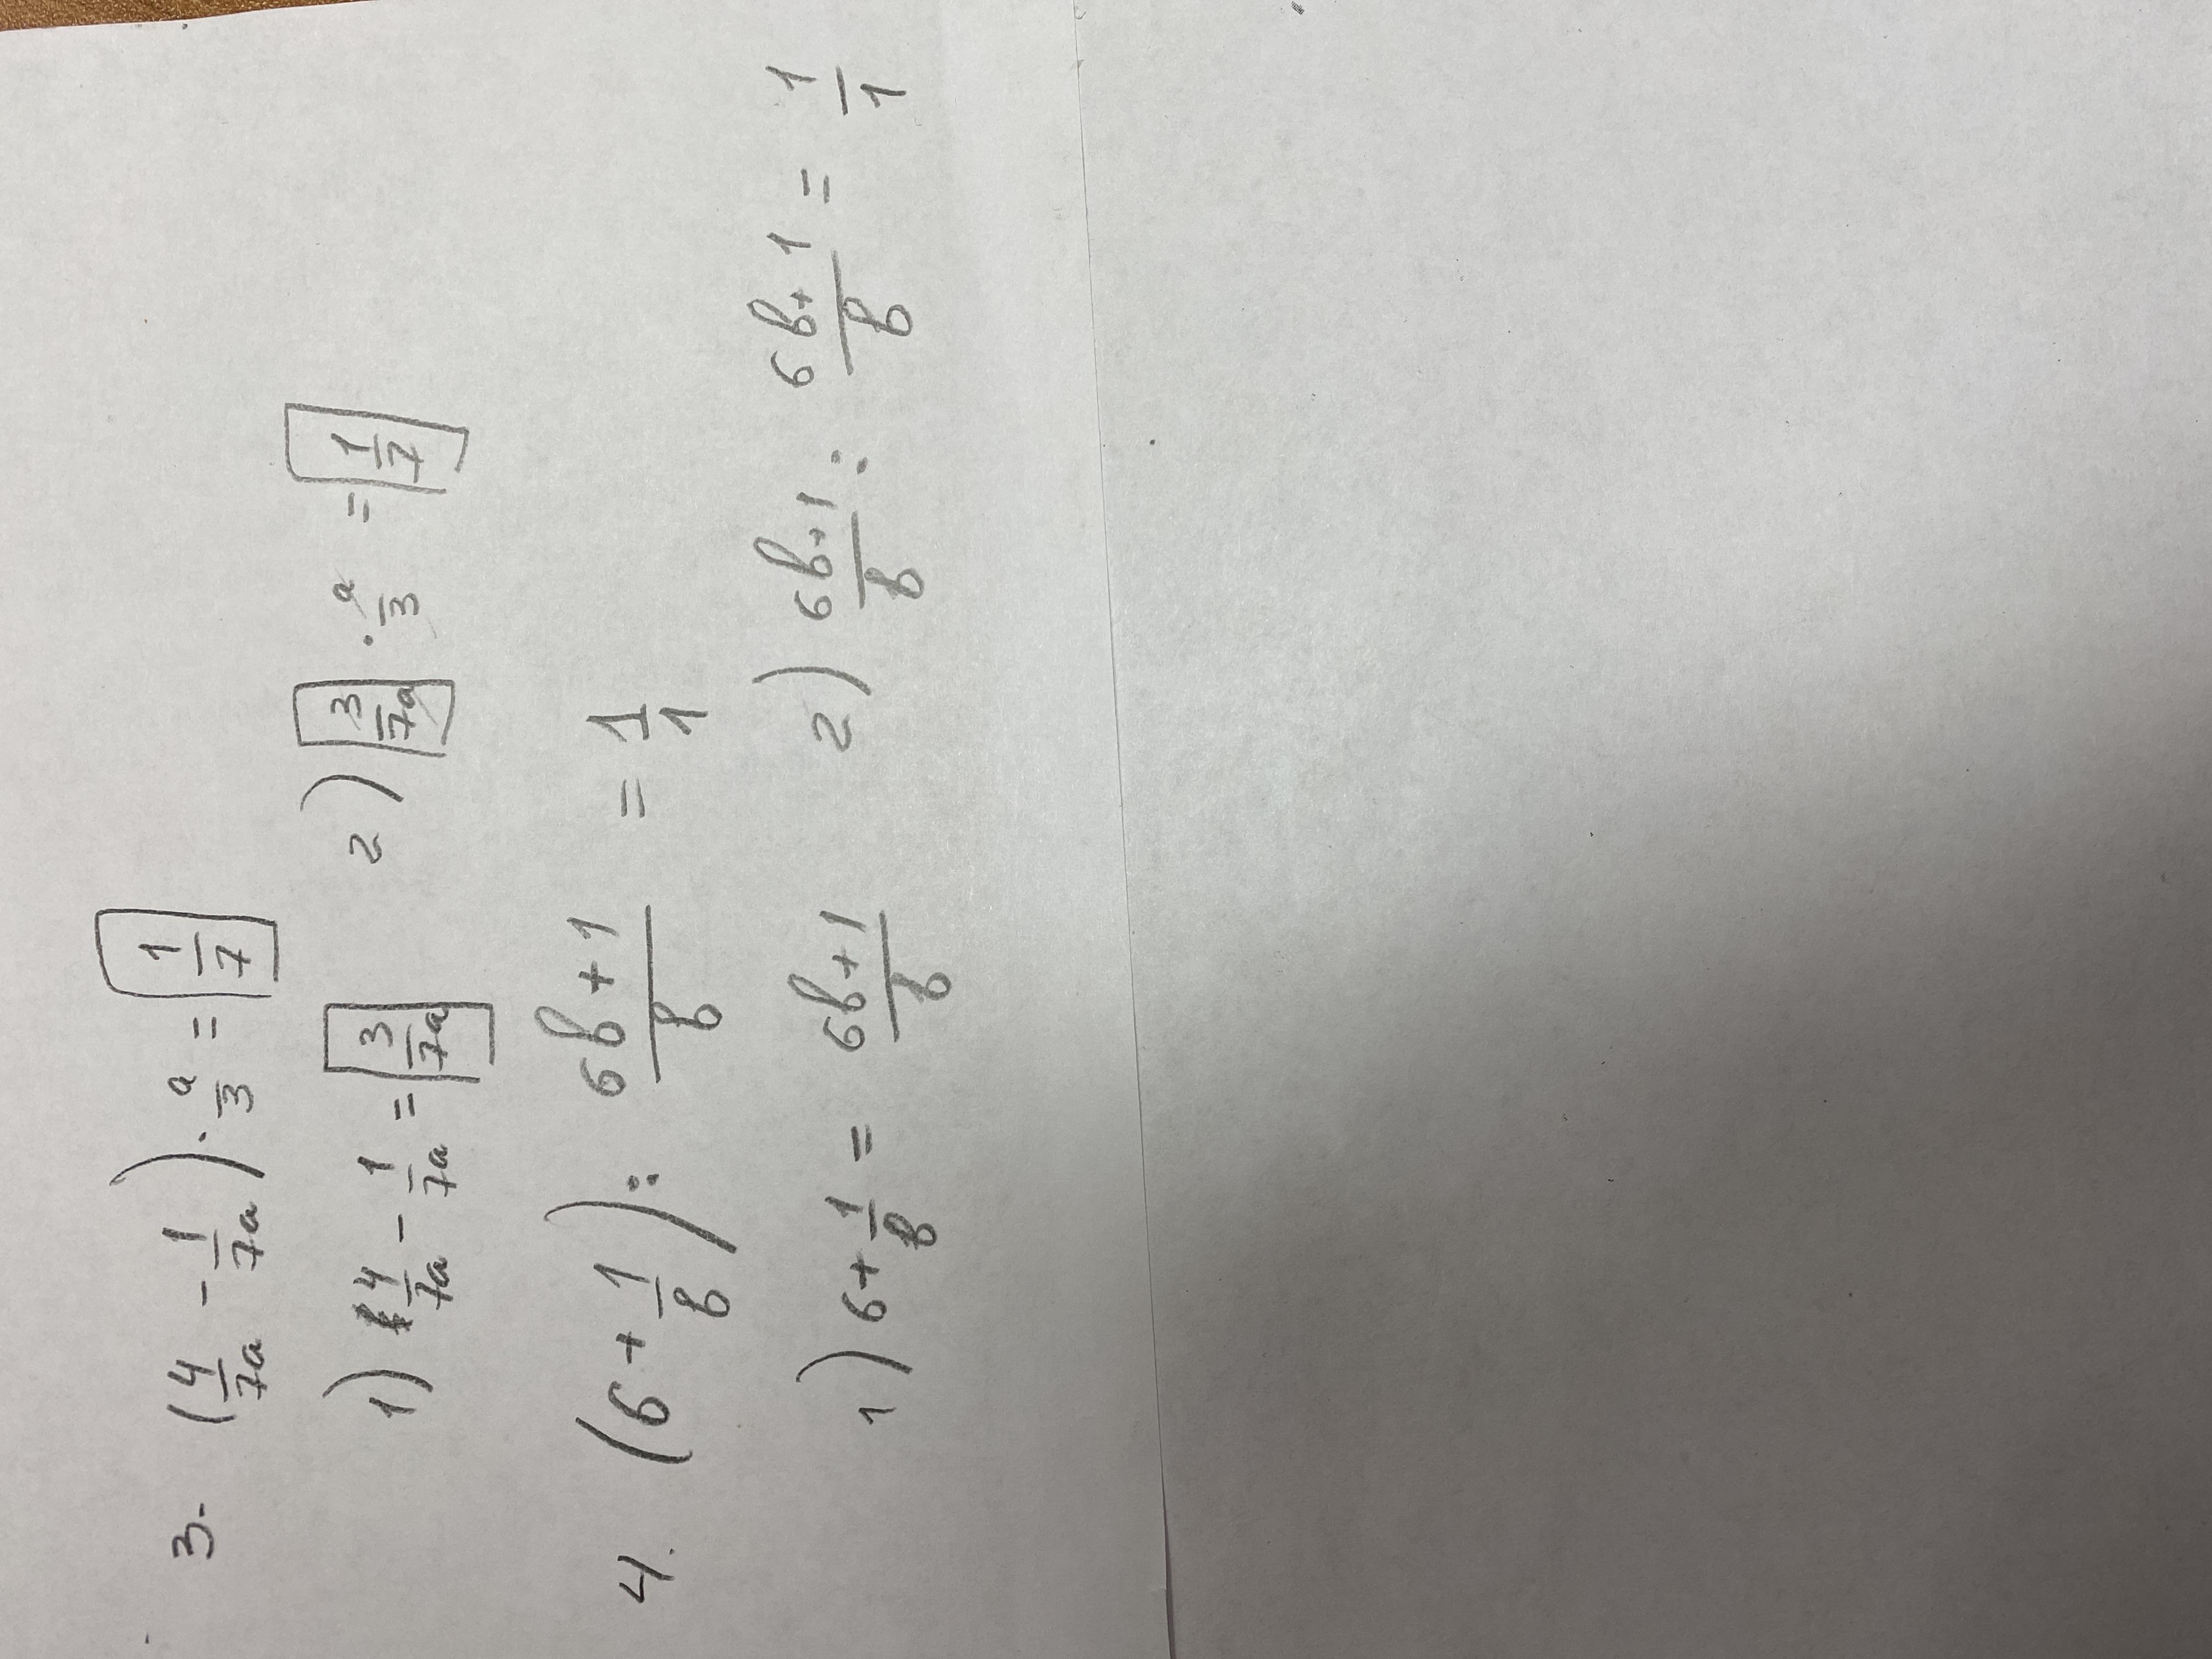 3. (4/7a - 1/7a) · a/3 = 1/7
1) 4/7a - 1/7a = 3/7a 2) 3/7a · a/3 = 1/7
4. (6 + 1/b) : 6b+1/b = 1/1
1) 6 + 1/b = 6b+1/b 2) 6b+1/b : 6b+1/b = 1/1